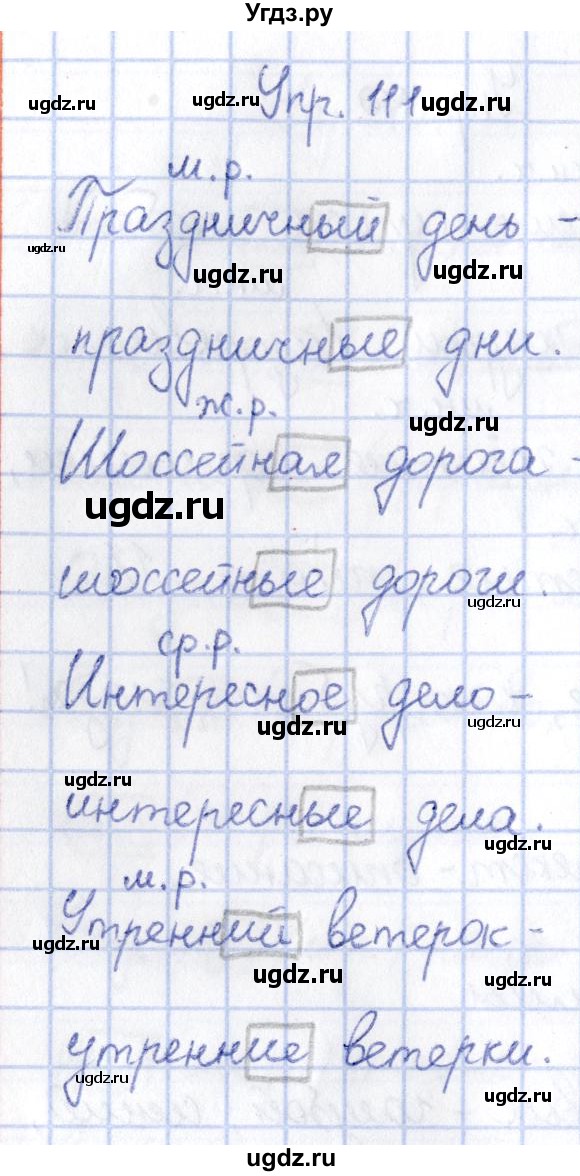 Угдз.ру
Упр. 111
ugdz.ru ugdz.ru ugdz.ru
м. р.
Праздничный день -
ugdz.ru ugdz.ru ugdz.ru
праздничные дни.
ж. р. ugdz.ru
Шоссейная дорога -
ugdz.ru
шоссейные дороги.
ugdz.ru
ср. р.
Интересное дело -
ugdz.ru ugdz.ru
ugdz.ru
интересные дела.
ugdz.ru
м. р.
Утренний ветерок -
ugdz.ru ugdz.ru ugdz.ru
утренние ветерки.
ugdz.ru ugdz.ru
ugdz.ru